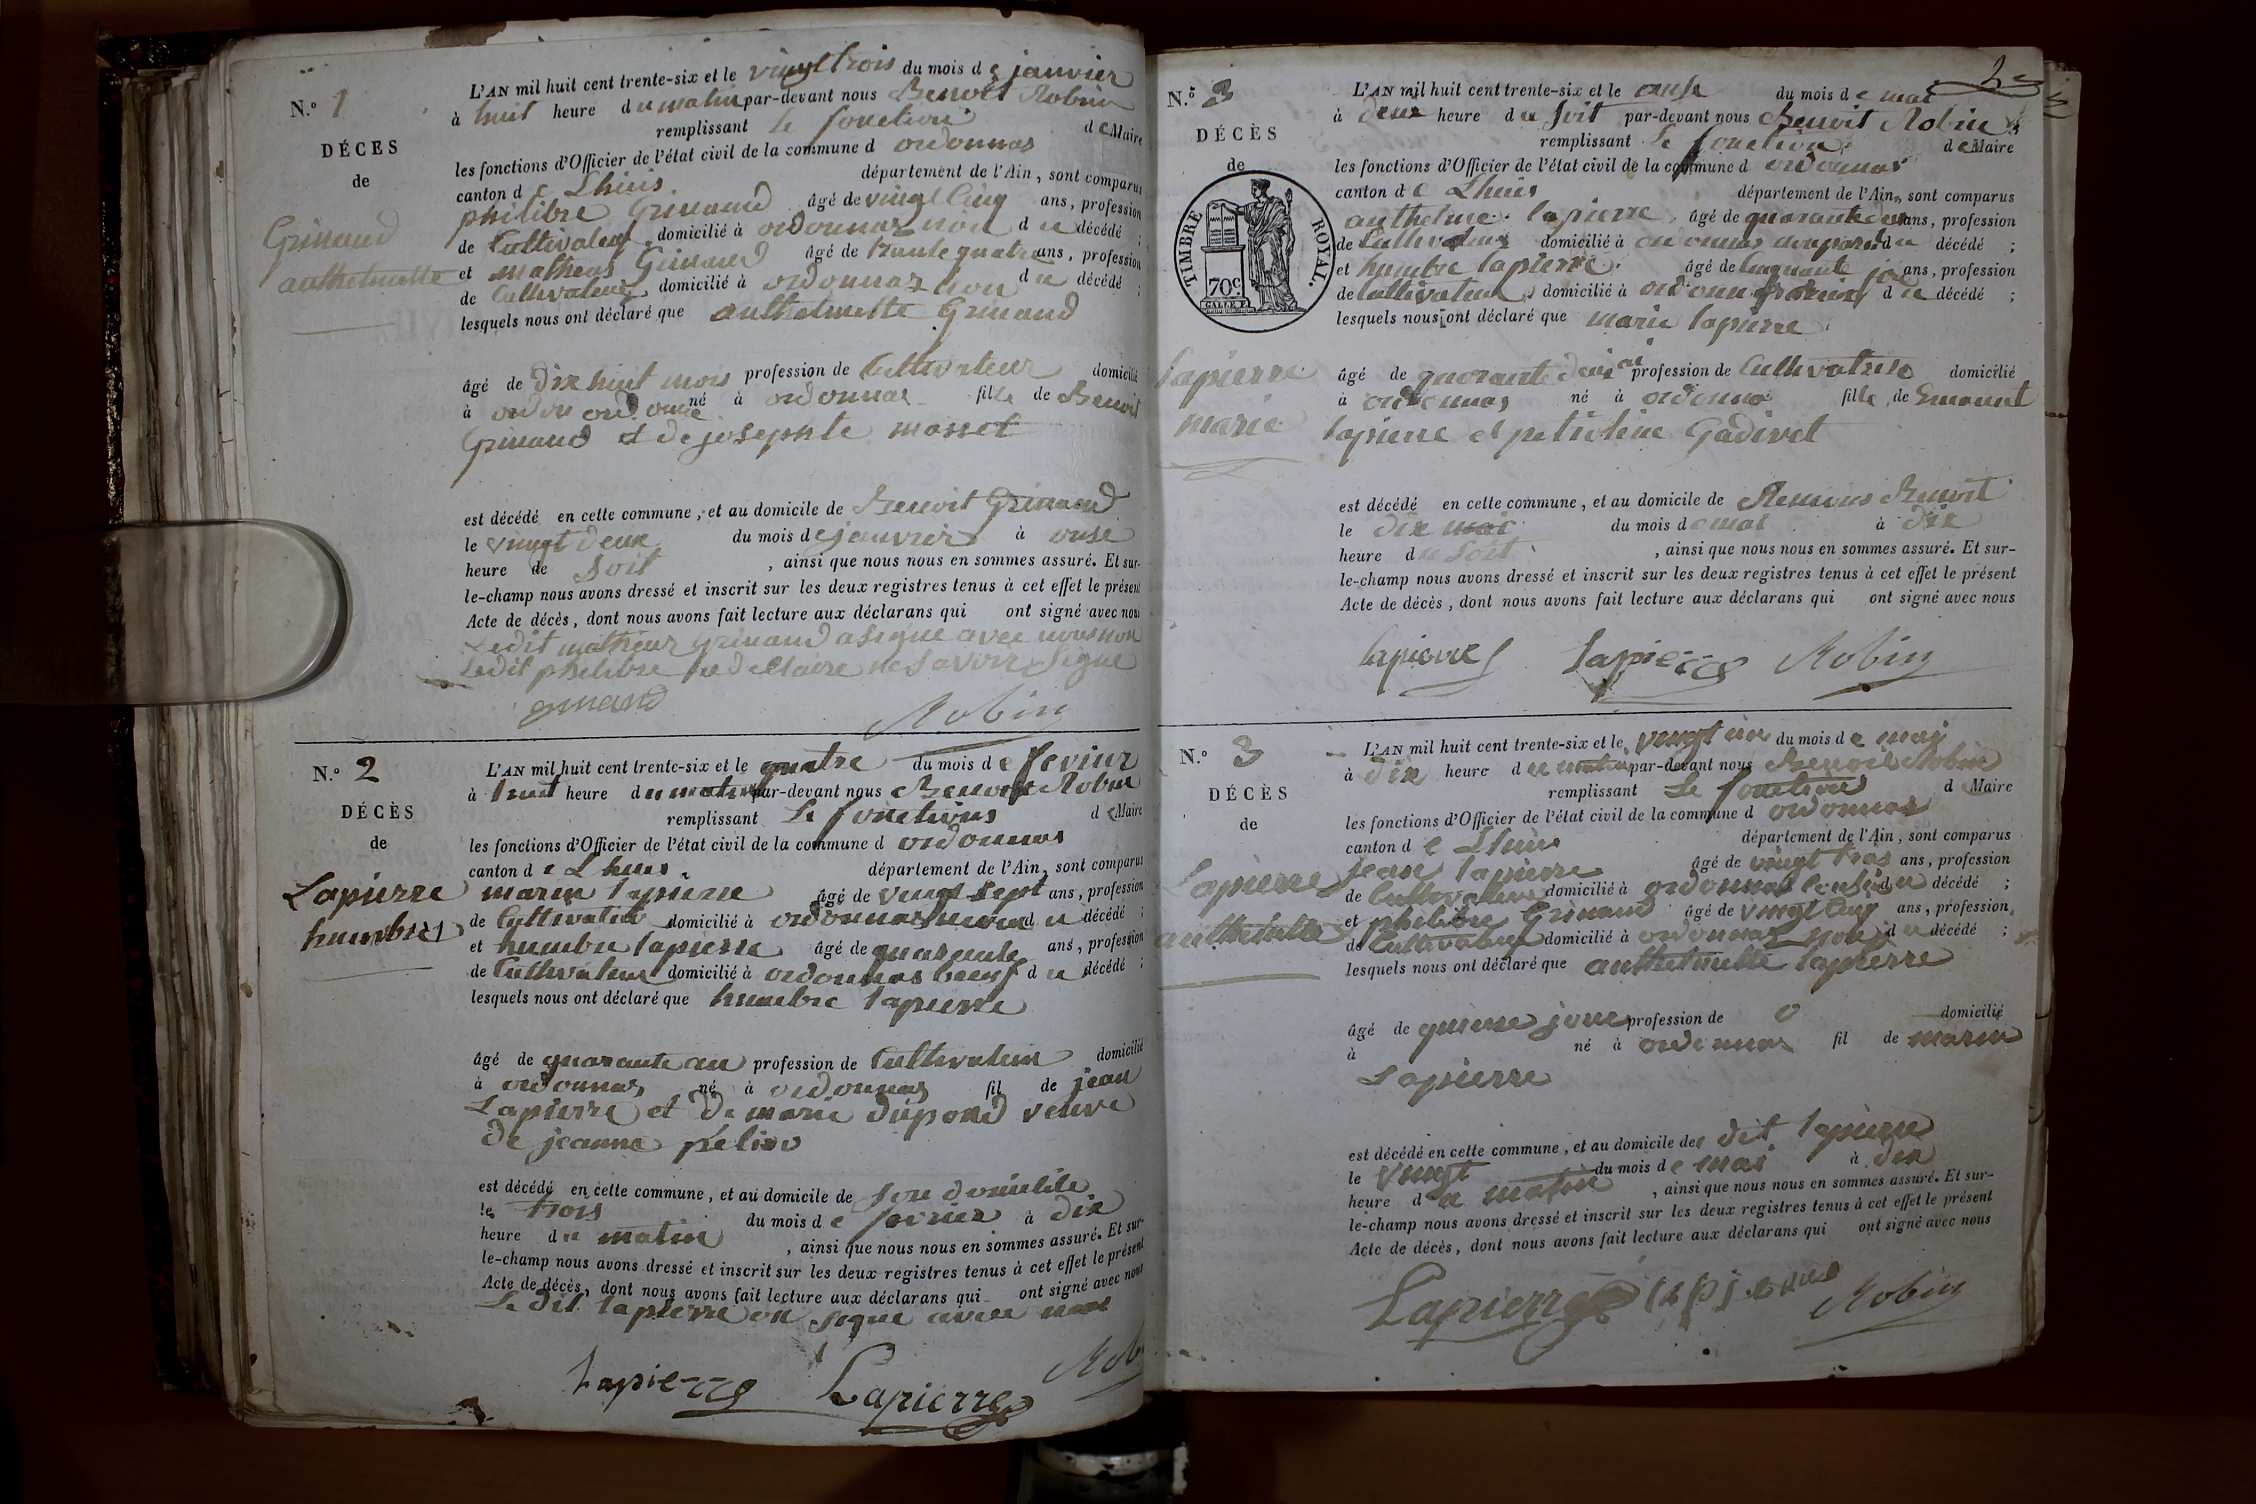 N.° 1
DÉCES
de
Grinand
anthelmette
L'AN mil huit cent trente-six et le vingt trois du mois de janvier
à huit heure du matin par-devant nous Benoit Robin
remplissant le fonction de Maire
les fonctions d'Officier de l'état civil de la commune d ordonnas
canton de Lhuis département de l'Ain, sont comparus
philibre Grinand âgé de vingt cinq ans, profession
de Cultivateur domicilié à ordonnas du décédé ;
et matheus Grinand âgé de trante quatre ans, profession
de Cultivateur domicilié à ordonnas du décédé ;
lesquels nous ont déclaré que anthelmette Grinand
âgé de dix huit mois profession de Cultivateur domicilié
à ordonnas né à ordonnas fille de Benoit
Grinand et de josephte masset
est décédé en cette commune, et au domicile de Benoit Grinand
le vingt deux du mois de janvier à onse
heure de soit , ainsi que nous nous en sommes assuré. Et sur-
le-champ nous avons dressé et inscrit sur les deux registres tenus à cet effet le présent
Acte de décès, dont nous avons fait lecture aux déclarans qui ont signé avec nous
Ledit matheus Grinand a signe avec nous non
Ledit philibre declaire ne savoir signe
grinand Robin
N.° 2
DÉCÈS
de
Lapierre
humbert
L'AN mil huit cent trente-six et le quatre du mois de fevrier
à huit heure du matin par-devant nous Benoit Robin
remplissant Le fonctions de Maire
les fonctions d'Officier de l'état civil de la commune d ordonnas
canton de Lhuis département de l'Ain, sont comparus
marin lapierre âgé de vingt sept ans, profession
de Cultivateur domicilié à ordonnas du décédé ;
et humbre lapierre âgé de quarante ans, profession
de Cultivateur domicilié à ordonnas du décédé ;
lesquels nous ont déclaré que humbre lapierre
âgé de quarante an profession de Cultivateur domicilié
à ordonnas né à ordonnas fil de jean
Lapierre et de marie dupond veuve
de jeanne
est décédé en cette commune, et au domicile de son domicile
le trois du mois de fevrier à dix
heure du matin , ainsi que nous nous en sommes assuré. Et sur-
le-champ nous avons dressé et inscrit sur les deux registres tenus à cet effet le présent
Acte de décès, dont nous avons fait lecture aux déclarans qui ont signé avec nous
Le dit lapierre on signe avec nous
Lapierre Lapierre Rob
2
N.° 3
DÉCÈS
de
TIMBRE ROYAL.
70c
Lapierre
marie
L'AN mil huit cent trente-six et le onse du mois de mai
à deux heure du soit par-devant nous Benoit Robin
remplissant Le fonction de Maire
les fonctions d'Officier de l'état civil de la commune d ordonnas
canton de Lhuis département de l'Ain, sont comparus
anthelme lapierre âgé de quarante deux ans, profession
de Cultivateur domicilié à ordonnas du décédé ;
et humbre lapierre âgé de cinquante ans, profession
de Cultivateur domicilié à ordonnas du décédé ;
lesquels nous ont déclaré que marie lapierre
âgé de quarante deus profession de Cultivatrise domicilié
à ordonnas né à ordonnas fille de Emanuel
lapierre et petroline Gadivet
est décédé en cette commune, et au domicile de Benoit
le dix mai du mois de mai à dix
heure du soit , ainsi que nous nous en sommes assuré. Et sur-
le-champ nous avons dressé et inscrit sur les deux registres tenus à cet effet le présent
Acte de décès, dont nous avons fait lecture aux déclarans qui ont signé avec nous
lapierre Lapierre Robin
N.° 3
DÉCÈS
de
Lapierre
anthelmette
L'AN mil huit cent trente-six et le vingt un du mois de mai
à dix heure du matin par-devant nous Benoit Robin
remplissant Le fonction d Maire
les fonctions d'Officier de l'état civil de la commune d ordonnas
canton de Lhuis département de l'Ain, sont comparus
jean lapierre âgé de vingt trois ans, profession
de Cultivateur domicilié à ordonnas du décédé ;
et philibre Grinand âgé de vingt cinq ans, profession
de Cultivateur domicilié à ordonnas du décédé ;
lesquels nous ont déclaré que anthelmette lapierre
âgé de quinse jour profession de 0 domicilié
à né à ordonnas fil de marin
Lapierre
est décédé en cette commune, et au domicile de dit lapierre
le vingt du mois de mai à dix
heure du matin , ainsi que nous nous en sommes assuré. Et sur-
le-champ nous avons dressé et inscrit sur les deux registres tenus à cet effet le présent
Acte de décès, dont nous avons fait lecture aux déclarans qui ont signé avec nous
Lapierre Robin